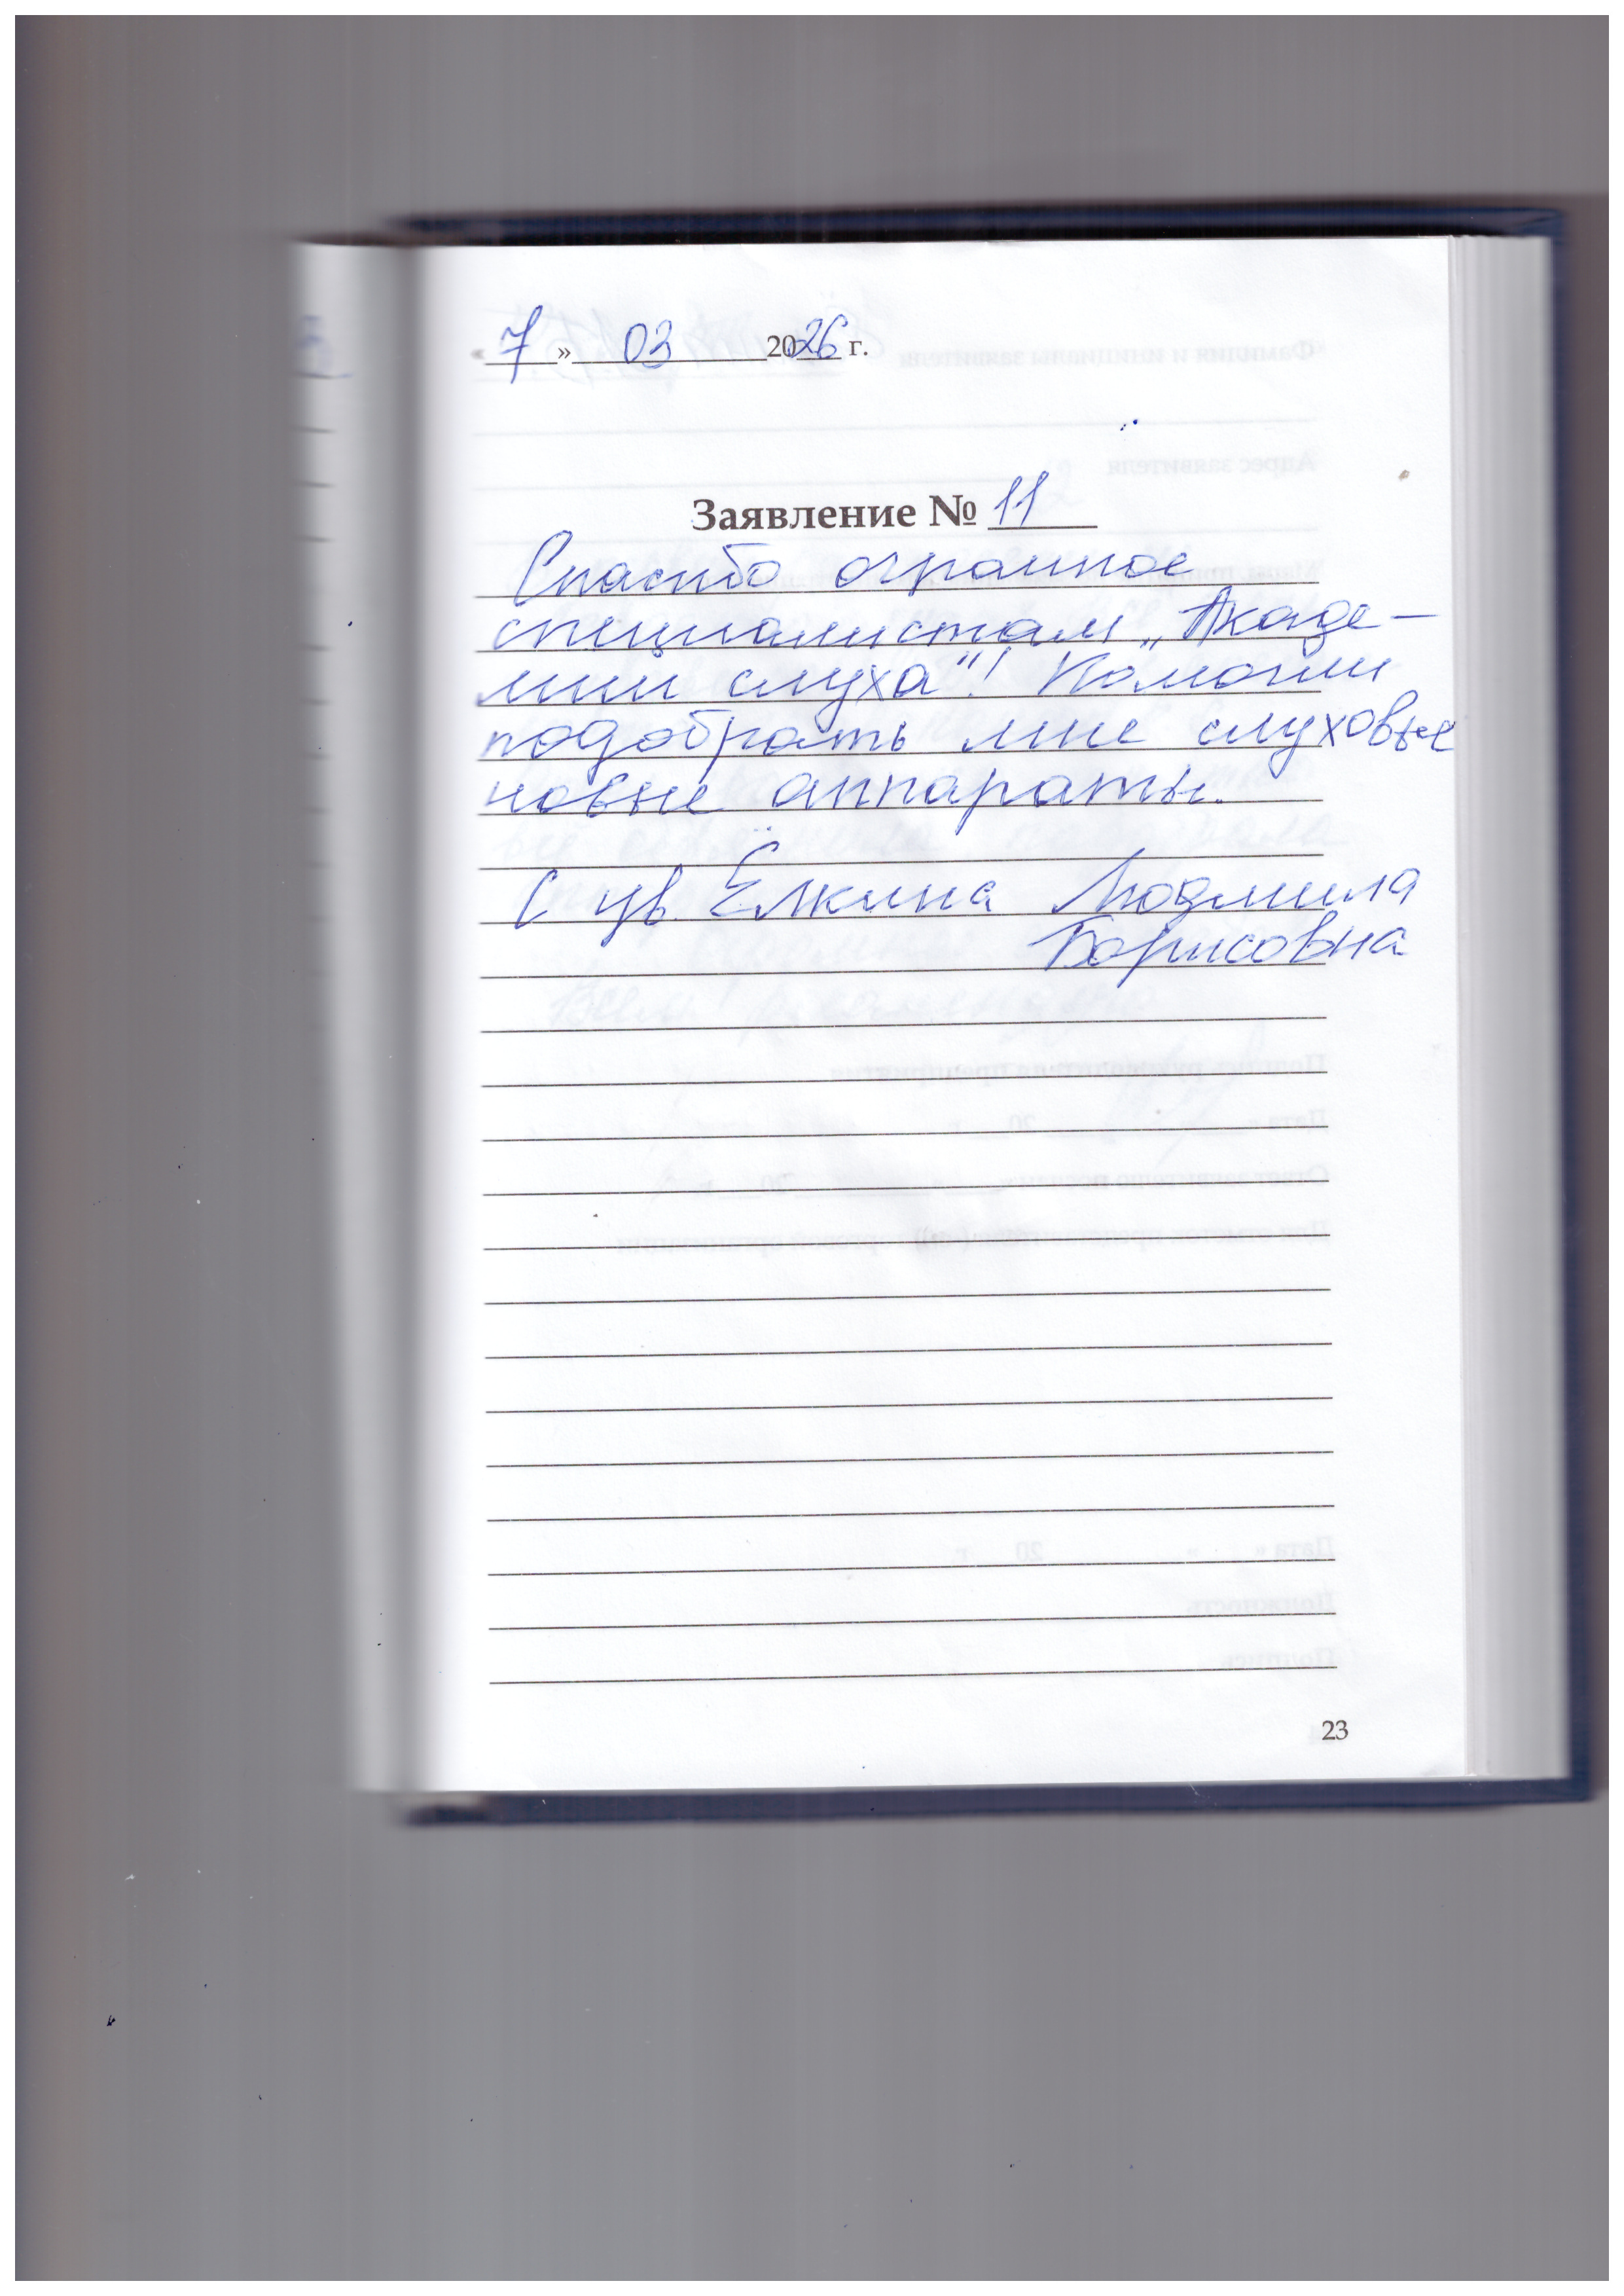 « 7 » 03 2026 г.
Заявление № 11
Спасибо огромное
специалистам „Акаде-
мии слуха"! Помогли
подобрать мне слуховые
новые аппараты.
С ув. Ёлкина Людмила
Борисовна
23